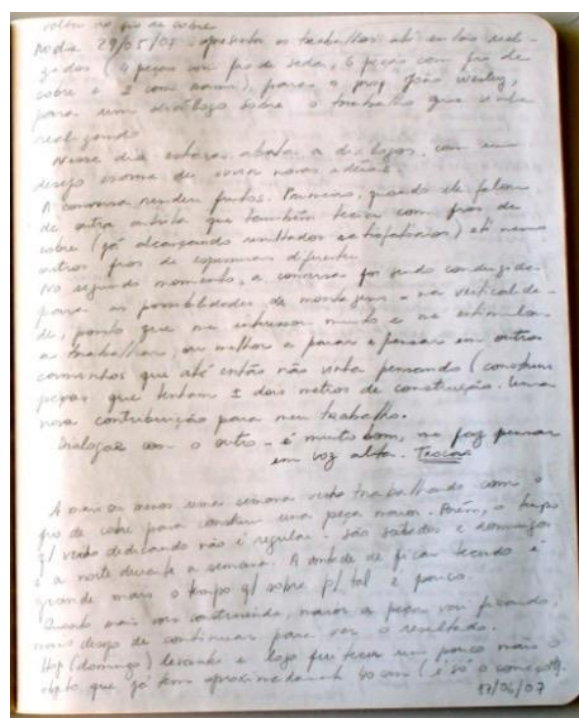 voltar ao fio de cobre
No dia 29/05/07 - apresentei os trabalhos até então reali-
zados (4 peças com fio de seda, 6 peças com fio de
cobre e 1 com), para o prof João Wesley,
para um diálogo sobre o trabalho que vinha
realizando.
Nesse dia estava aberta a diálogos, com um
desejo enorme de ouvir novas idéias.
A conversa rendeu frutos. Primeiro, quando ele falou
de outra artista que também tecia com fios de
cobre (já alcançando resultados satisfatórios) até mesmo
outros fios de espessuras diferentes.
No segundo momento, a conversa foi sendo conduzida
para as possibilidades de montagens - na verticalida-
de, ponto que me interessou muito e me estimulou
a trabalhar, ou melhor a parar e pensar em outros
caminhos que até então não vinha pensando (construir
peças que tenham ± dois metros de construção. Uma
nova contribuição para meu trabalho.
Dialogar com o outro - é muito bom, me faz pensar
em voz alta. Trocar
A mais ou menos uma semana venho trabalhando com o
fio de cobre para construir uma peça maior. Porém, o tempo
q/ venho dedicando não é regular - são sábados e domingos
e a noite durante a semana. A vontade de ficar tecendo é
grande mais o tempo q/ sobra p/ tal é pouco.
Quanto mais vou construindo, maior a peça vai ficando,
mais desejo de continuar para ver o resultado.
Hoje (domingo) levantei e logo fui tecer um pouco mais o
objeto que já tem aproximadamente 40 cm (é só o começo).
17/06/07